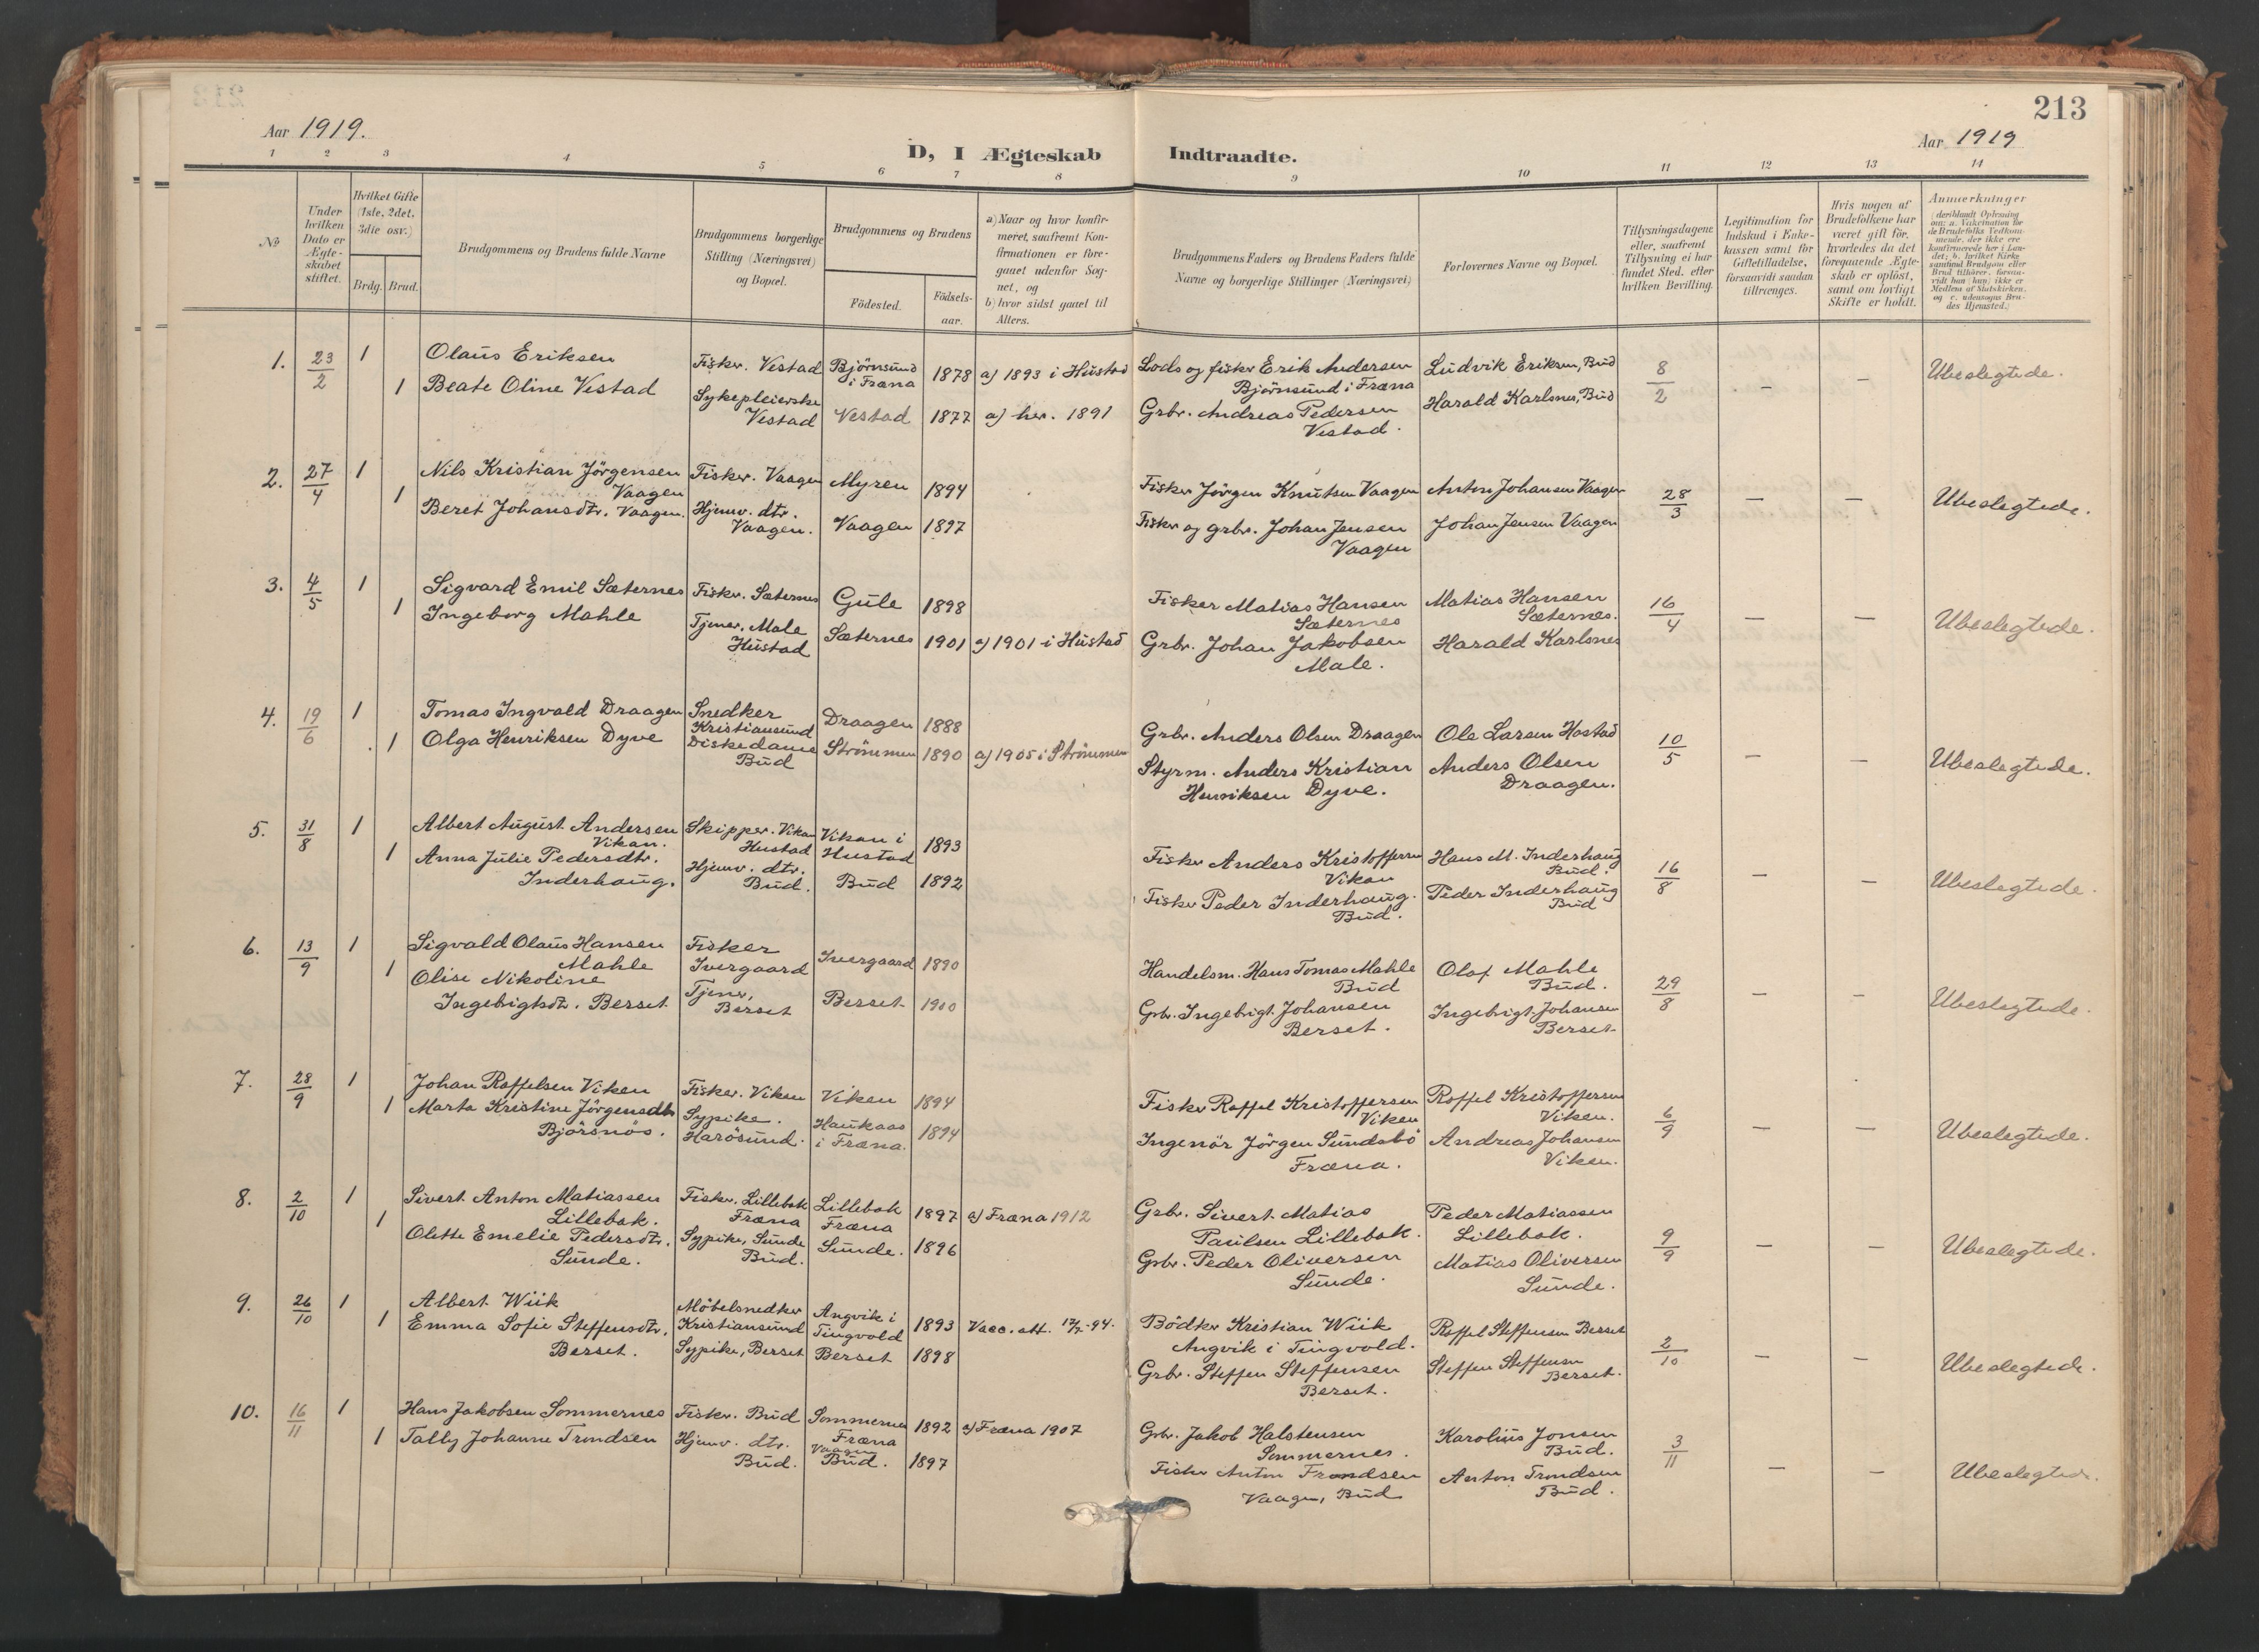 213
Aar 1919.
Aar 1919
D, I Ægteskab Indtraadte.
1 2 3 4 5 6 7 8 9 10 11 12 13 14
No
Under hvilken Dato er Ægteskabet stiftet.
Hvilket Gifte (1ste, 2det, 3die osv.)
Brdg. Brud.
Brudgommens og Brudens fulde Navne
Brudgommens borgerlige Stilling (Næringsvei) og Bopæl.
Brudgommens og Brudens
Födested.
Födsels-aar.
a) Naar og hvor konfirmeret, saafremt Konfirmationen er foregaaet udenfor Sognet, og
b) hvor sidst gaaet til Alters.
Brudgommens Faders og Brudens Faders fulde Navne og borgerlige Stillinger (Næringsvei)
Forlovernes Navne og Bopæl.
Tillysningsdagene eller, saafremt Tillysning ei har fundet Sted, efter hvilken Bevilling.
Legitimation for Indskud i Enkekassen samt for Giftetilladelse, forsaavidt saadan tiltrænges.
Hvis nogen af Brudefolkene har været gift för, hvorledes da det foregaaende Ægteskab er oplöst, samt om lovligt Skifte er holdt.
Anmærkninger
(deriblandt Oplysning om: a. Vakcination for de Brudefolks Vedkommende, der ikke ere konfirmerede her i Landet; b. hvilket Kirkesamfund Brudgom eller Brud tilhörer, forsaavidt han (hun) ikke er Medlem af Statskirken, og c. udensogns Brudes Hjemsted.)
1. 23/2 1 Olaus Eriksen Fisker. Vestad Björnsund i Fræna 1878 a) 1893 i Hustad Lods og fisker Erik Andersen Björnsund i Fræna Ludvik Eriksen, Bud 8/2 - - Ubeslegtede.
1 Beate Oline Vestad Sykepleierske Vestad Vestad 1877 a) her. 1891 Grbr. Andreas Pedersen Vestad. Harald Karlsnes, Bud
2. 27/4 1 Nils Kristian Jörgensen Vaagen Fisker. Vaagen Myren 1894 Fisker Jörgen Knutsen Vaagen Anton Johansen Vaagen 28/3 - - Ubeslegtede.
1 Beret Johansdtr. Vaagen. Hjemv. dtr. Vaagen. Vaagen 1897 Fisker og grbr. Johan Jensen Vaagen Johan Jensen Vaagen
3. 4/5 1 Sigvard Emil Sæternes Fisker. Sæternes Gule 1898 Fisker Matias Hansen Sæternes Matias Hansen Sæternes. 16/4 - - Ubeslegtede.
1 Ingeborg Mahle Tjener, Male Hustad Sæternes 1901 a) 1901 i Hustad Grbr. Johan Jakobsen Male. Harald Karlsnes
4. 19/6 1 Tomas Ingvald Draagen Snedker Kristiansund Draagen 1888 Grbr. Anders Olsen Draagen Ole Larsen Hostad 10/5 - - Ubeslegtede.
1 Olga Henriksen Dyve Diskedame Bud Strömmen 1890 a) 1905 i Strömmen Styrm. Anders Kristian Henriksen Dyve. Anders Olsen Draagen.
5. 31/8 1 Albert August Andersen Vikan. Skipper. Vikan Hustad Vikan i Hustad 1893 Fisker Anders Kristoffersen Vikan Hans M. Inderhaug Bud. 16/8 - - Ubeslegtede.
1 Anna Julie Pedersdtr. Inderhaug. Hjemv. dtr. Bud. Bud 1892 Fisker Peder Inderhaug. Bud. Peder Inderhaug Bud
6. 13/9 1 Sigvald Olaus Hansen Mahle Fisker Ivergaard Ivergaard 1890 Handelsm. Hans Tomas Mahle Bud Olaf Mahle Bud. 29/8 - - Ubeslegtede.
1 Olise Nikoline Ingebrigtsdtr. Berset Tjener, Berset Berset 1900 Grbr. Ingebrigt Johansen Berset. Ingebrigt Johansen Berset
7. 28/9 1 Johan Roffelsen Viken Fisker. Viken Viken 1894 Fisker Roffel Kristoffersen Viken Roffel Kristoffersen Viken. 6/9 - - Ubeslegtede.
1 Marta Kristine Jörgensdtr Björsnös. Sypike. Harösund. Haukaas i Fræna. 1894 Ingenör Jörgen Sundsbö Fræna. Andreas Johansen Viken.
8. 2/10 1 Sivert Anton Matiassen Lillebok. Fisker. Lillebok Fræna Lillebok Fræna 1897 a) Fræna 1912 Grbr. Sivert Matias Paulsen Lillebok. Peder Matiassen Lillebok. 9/9 - - Ubeslegtede.
1 Olette Emelie Pedersdtr. Sunde. Sypike, Sunde Bud. Sunde. 1896 Grbr. Peder Oliversen Sunde. Matias Oliversen Sunde.
9. 26/10 1 Albert Wiik Möbelsnedker Kristiansund Angvik i Tingvold 1893 Vacc. att. Bödker Kristian Wiik Angvik i Tingvold. Roffel Steffensen Berset 2/10 - - Ubeslegtede.
1 Emma Sofie Steffensdtr. Berset. Sypike, Berset Berset 1898 Grbr. Steffen Steffensen Berset. Steffen Steffensen Berset.
10. 16/11 1 Hans Jakobsen Sommernes Fisker. Bud Sommernes Fræna 1892 a) Fræna 1907 Grbr. Jakob Halstensen Sommernes. Karolius Jonsen Bud. 3/11 - - Ubeslegtede.
1 Tally Johanne Trondsen Hjemv. dtr. Bud. Vaagen Bud. 1897 Fisker Anton Trondsen Vaagen, Bud Anton Trondsen Bud.